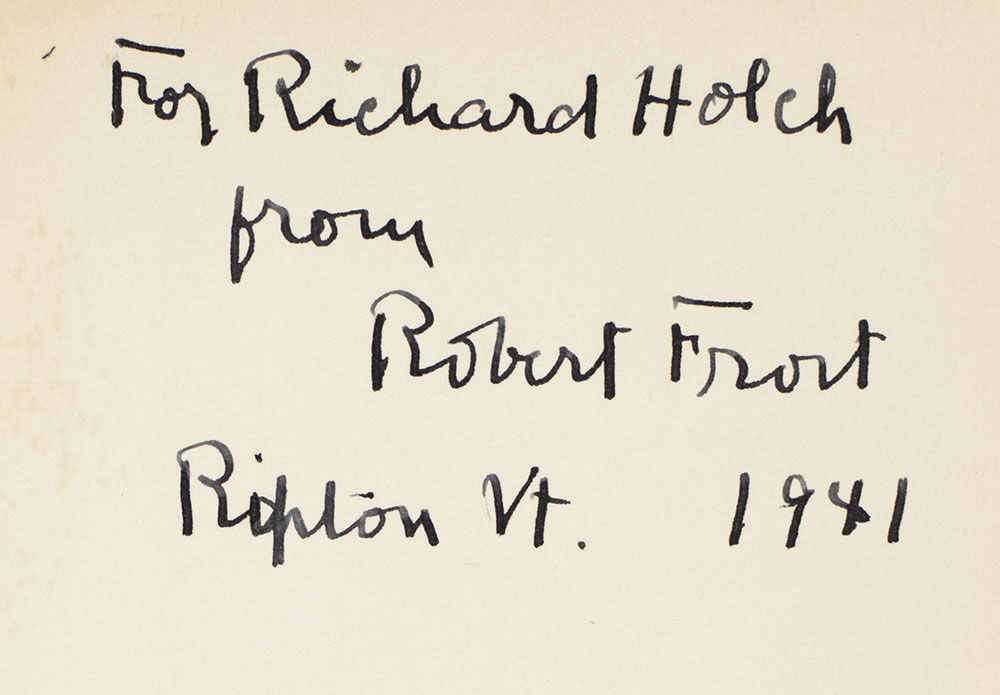 For Richard Holch
from
Robert Frost
Ripton Vt. 1941